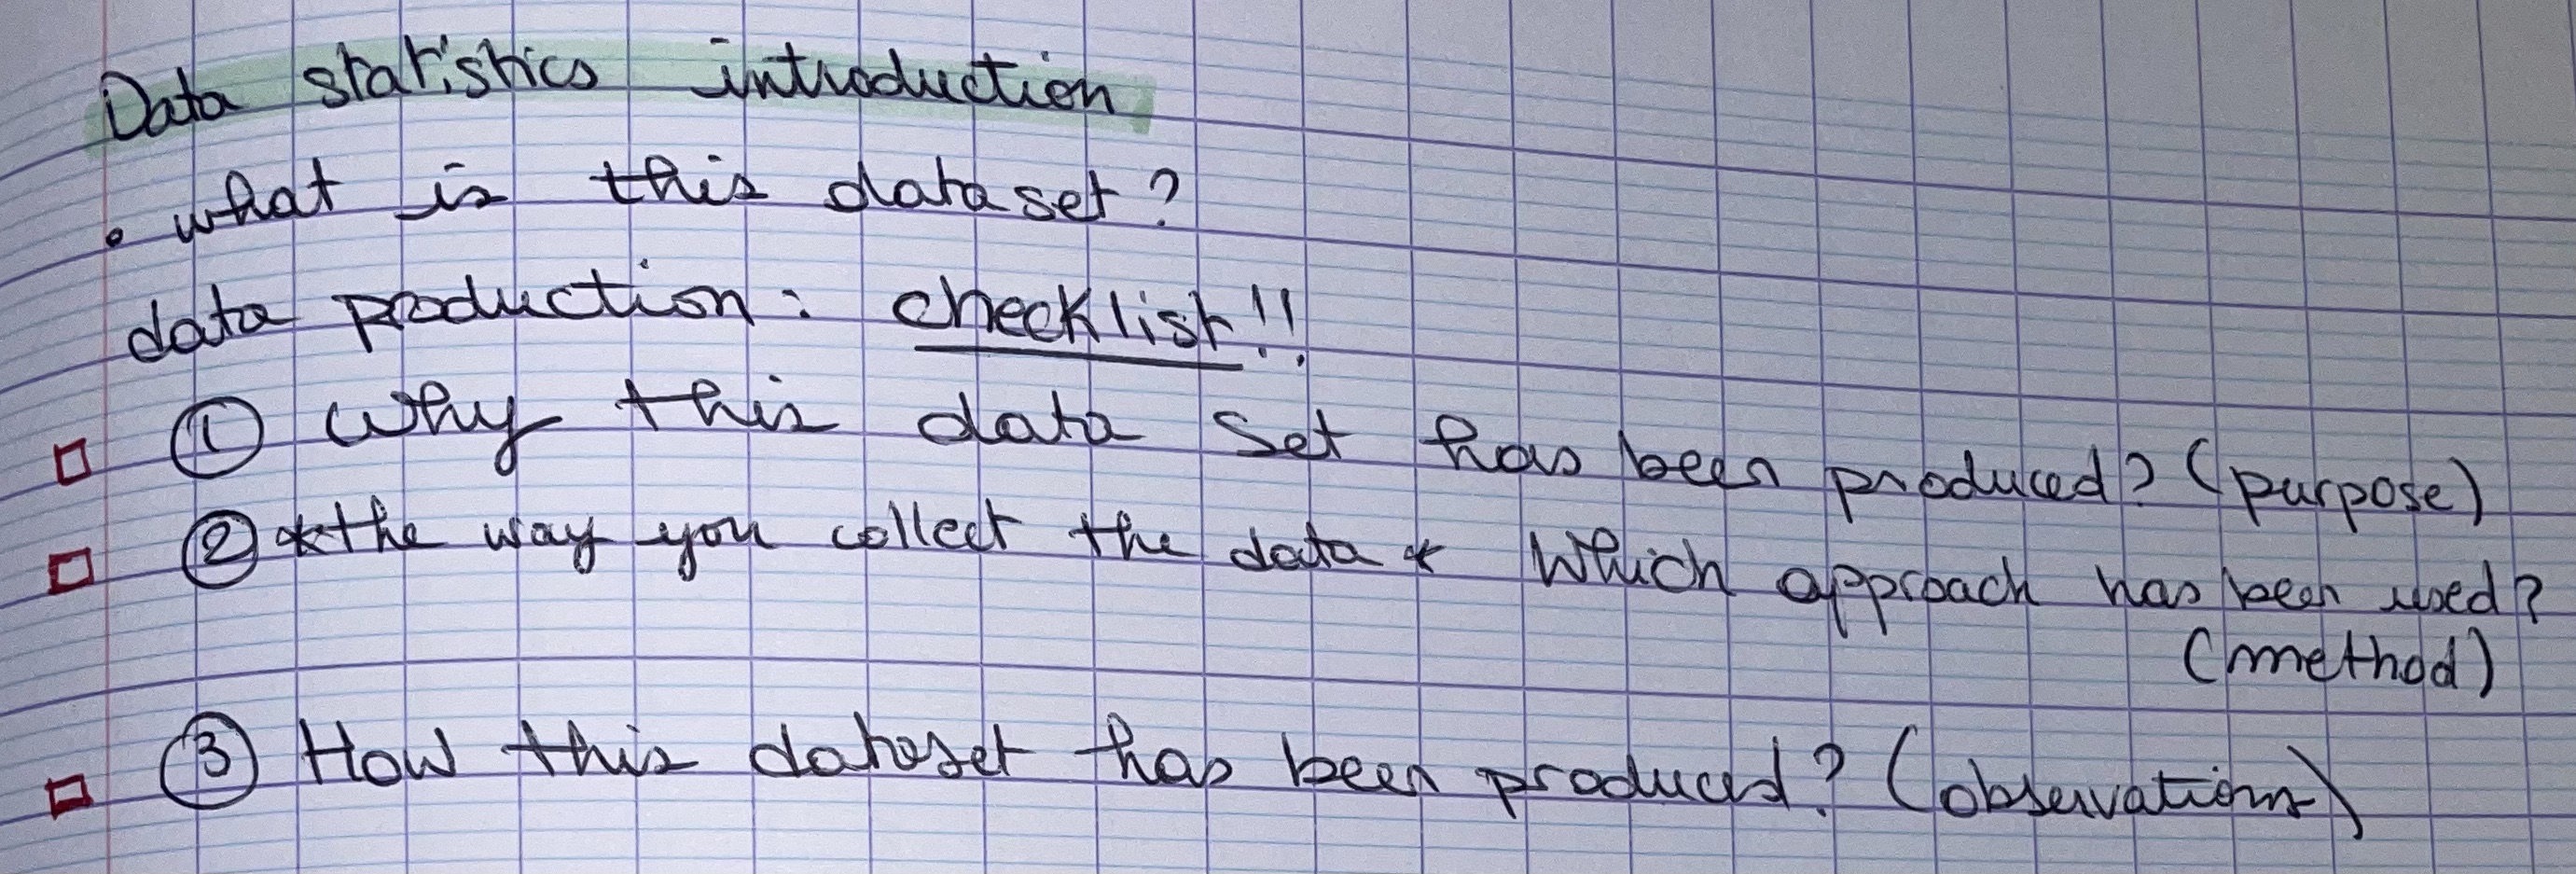 Data statistics introduction
• what is this dataset?
data production: checklist!!
① Why this data set has been produced? (purpose)
② *the way you collect the data * Which approach has been used?
(method)
③ How this dataset has been produced? (observations)